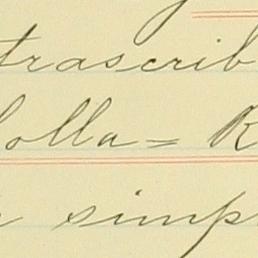 trascrib
olla= R
simp